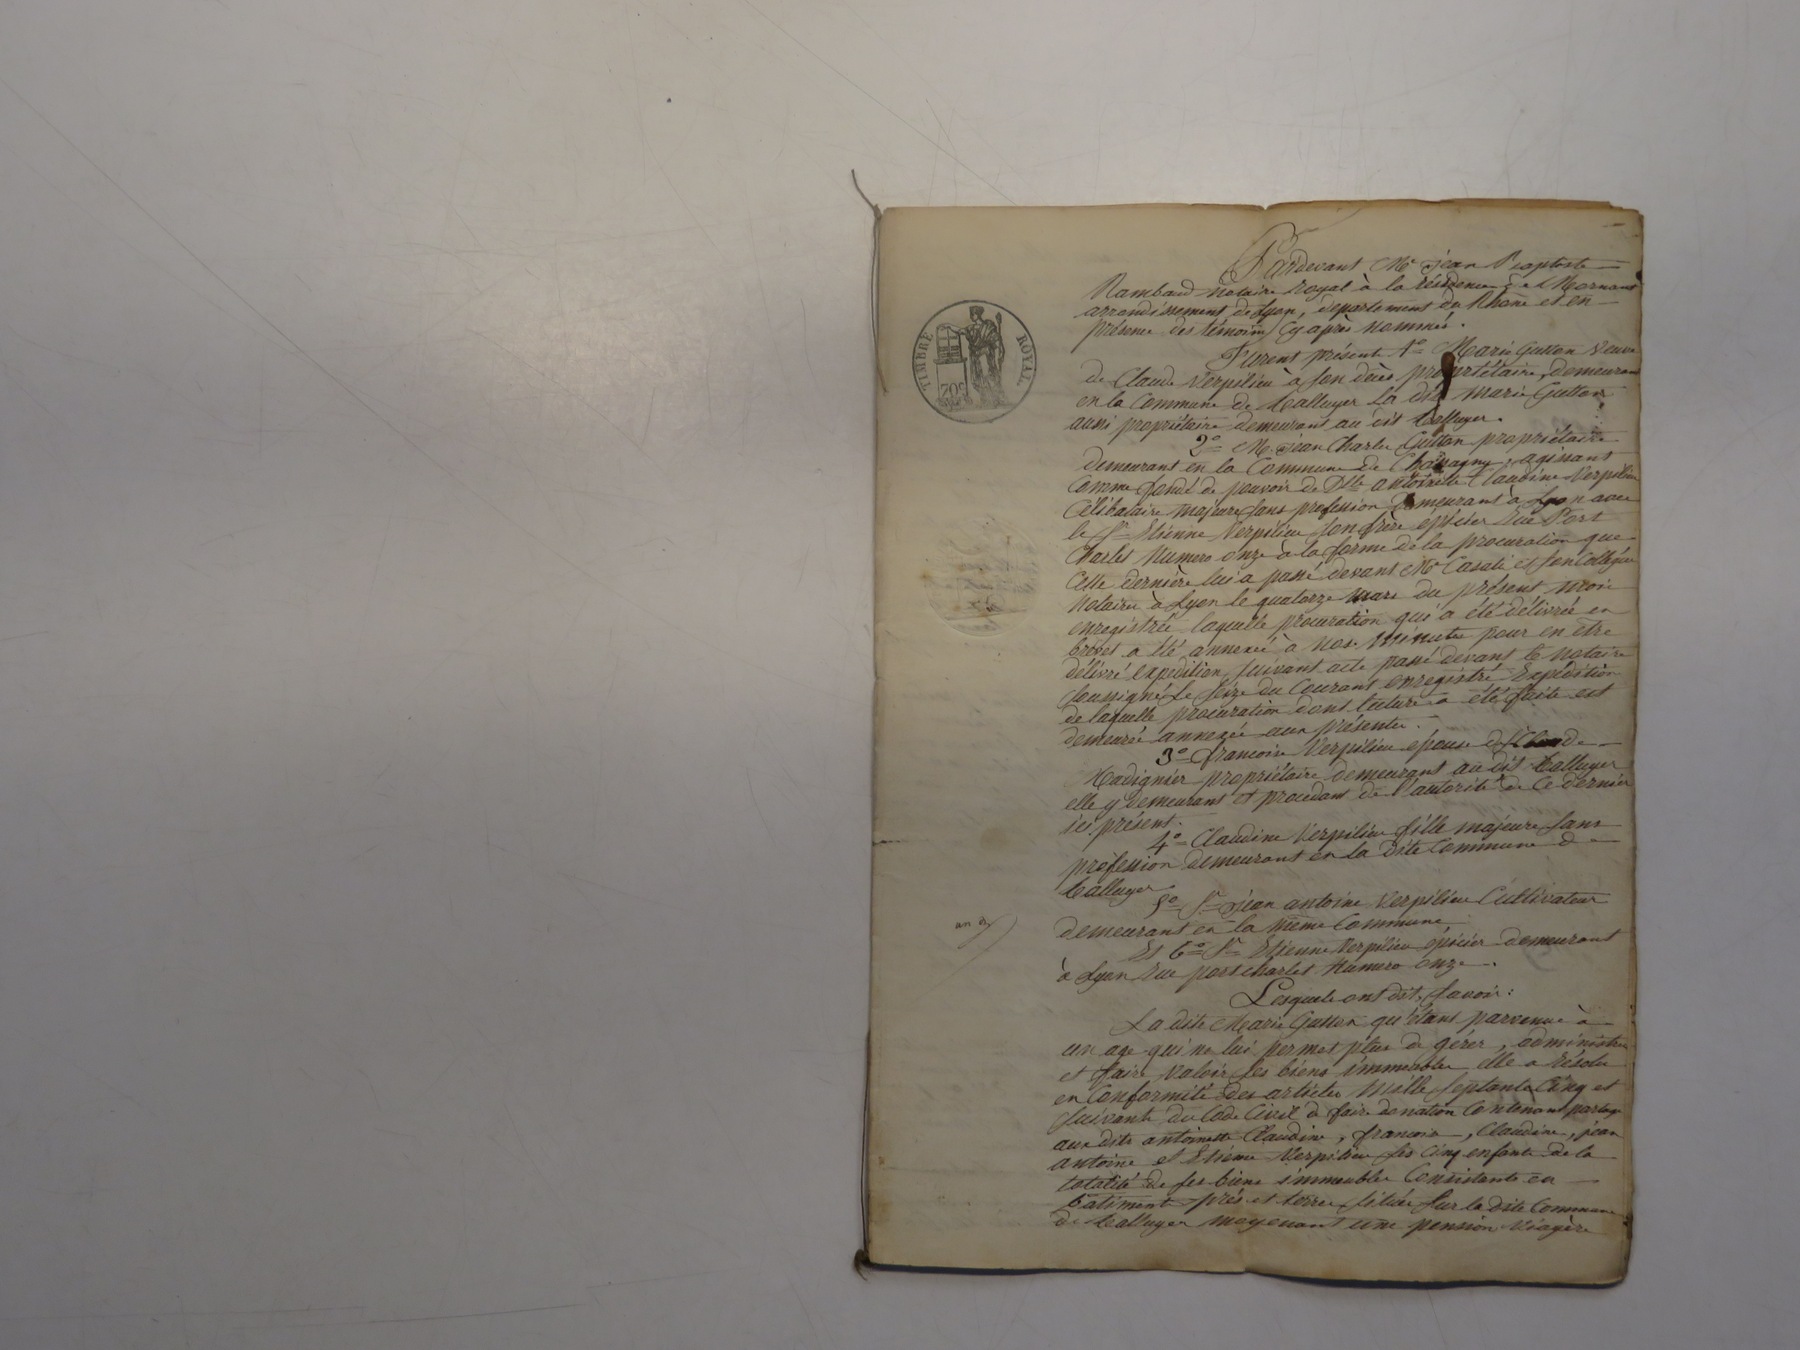 TIMBRE ROYAL
70c
Pardevant Me Jean Baptiste
Rambaud notaire royal à la résidence de Mornant
arrondissement de Lyon, département du Rhône et en
présence des témoins cy après nommés.
Furent présents 1o Marie Gutton veuve
de Claude Verpilieu à son décès propriétaire, demeurant
en la commune de Talluyer La dite Marie Gutton
aussi propriétaire demeurant au dit Talluyer.
2o M. Jean Charles Gutton propriétaire
demeurant en la Commune de agissant
comme fondé de pouvoir de Dlle antoinette Claudine Verpilieu
Célibataire majeure sans profession demeurant à Lyon avec
le Sr Etienne Verpilieu son frère épicier rue Port
Charlet Numero onze à la forme de la procuration que
cette dernière lui a passé devant Me Casati et son Collègue
Notaires à Lyon le quatorze mars du présent mois
enregistrée laquelle procuration qui a été délivrée en
brevet a été annexée à nos minutes pour en être
délivré expédition, suivant acte passé devant le notaire
soussigné le seize du Courant enregistré Expédition
de laquelle procuration dont lecture a été faite est
demeurée annexée aux présentes.
3o françoise Verpilieu épouse de Claude
Madignier propriétaire demeurant au dit Talluyer
elle y demeurant et procédant de l'autorité de ce dernier
ici présent.
4o Claudine Verpilieu fille majeure sans
profession demeurant en la dite Commune de
Talluyer
5o Sr Jean antoine Verpilieu Cultivateur
demeurant en la même Commune
Et 6o Sr Etienne Verpilieu épicier demeurant
à Lyon rue port charlet Numero onze.
Lesquels ont dit, savoir :
La dite Marie Gutton qu'étant parvenue à
un age qui ne lui permet plus de gérer, administrer
et faire valoir ses biens immeubles elle a résolu
en Conformité des articles Mille septante Cinq et
suivants du Code Civil de faire donation contenant partage
aux dits antoinette Claudine, françoise, Claudine, jean
antoine et Etienne Verpilieu ses cinq enfants de la
totalité de ses biens immeubles Consistants en
batiments prés et terres situés sur la dite Commune
de Talluyer moyenant une pension viagère